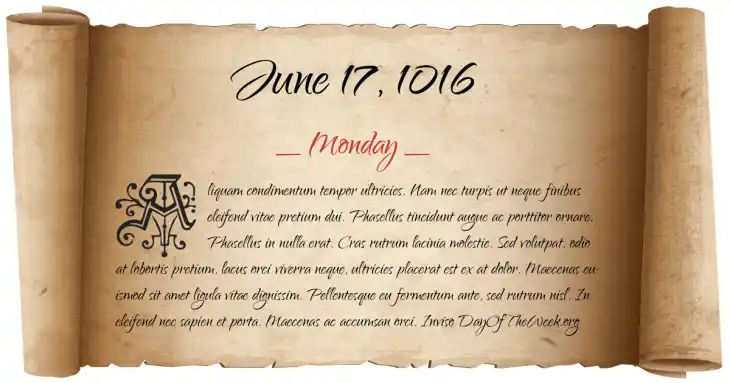 June 17, 1016
__ Monday __
Aliquam condimentum tempor ultricies. Nam nec turpis ut neque finibus
eleifend vitae pretium dui. Phasellus tincidunt augue ac porttitor ornare.
Phasellus in nulla erat. Cras rutrum lacinia molestie. Sed volutpat, odio
at lobortis pretium, lacus orci viverra neque, ultricies placerat est ex at dolor. Maecenas eu-
ismod sit amet ligula vitae dignissim. Pellentesque eu fermentum ante, sed rutrum nisl. In
eleifend nec sapien et porta. Maecenas ac accumsan orci. Inviso DayOfTheWeek.org